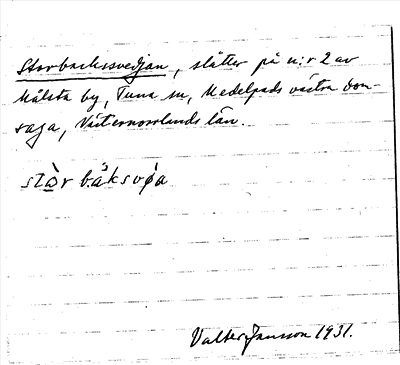 Storbacksvedjan, slåtter på n:r 2 av
Målsta by, Tuna sn, Medelpads västra dom-
saga, Västernorrlands län.
stɑ̀r báksvǿa
Valter Jansson 1931.